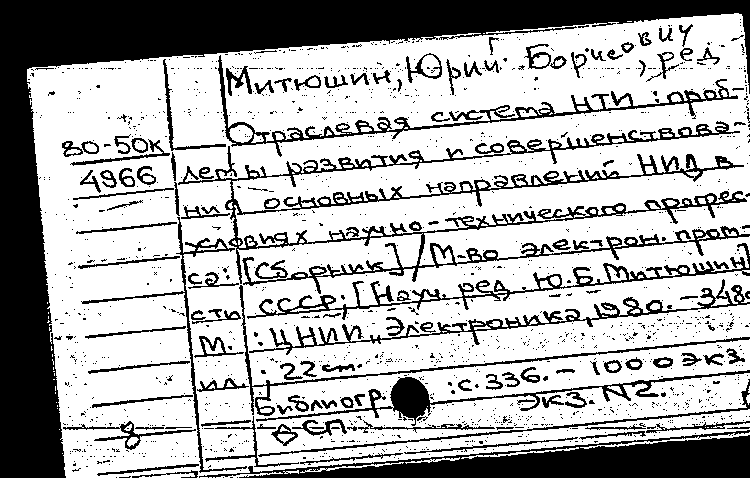 Митюшин, Юрий Борисович, ред.
80-50к
4966
Отраслевая система НТИ : проб-
лемы развития и совершенствова-
ния основных направлений НИД в
условиях научно-технического прогрес-
са: [Сборник] / М-во электрон. пром-
сти СССР; [Науч. ред. Ю.Б. Митюшин]
М. : ЦНИИ „Электроника, 1980. - 348с
ил. ; 22 см.
Библиогр. : с. 336. - 1000 экз.
сп. экз. N2.
8